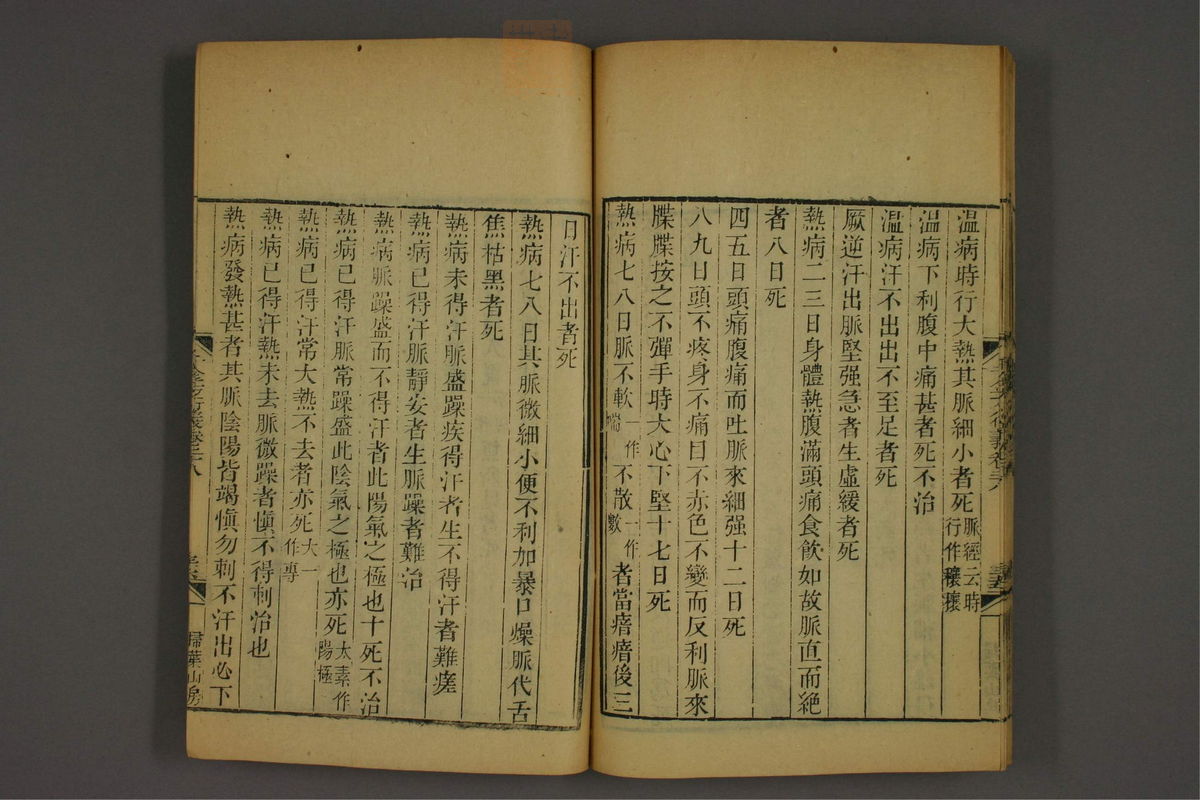 溫病時行大熱其脈細小者死脈經云時行作穰穰
溫病下利腹中痛甚者死不治
溫病汗不出出不至足者死
厥逆汗出脈堅强急者生虛緩者死
熱病二三日身體熱腹滿頭痛食飲如故脈直而絕
者八日死
四五日頭痛腹痛而吐脈來細强十二日死
八九日頭不疼身不痛目不赤色不變而反利脈來
牒牒按之不彈手時大心下堅十七日死
熱病七八日脈不軟一作喘不散一作數者當瘖瘖後三
日汗不出者死
熱病七八日其脈微細小便不利加暴口燥脈代舌
焦枯黑者死
熱病未得汗脈盛躁疾得汗者生不得汗者難瘥
熱病已得汗脈靜安者生脈躁者難治
熱病脈躁盛而不得汗者此陽氣之極也十死不治
熱病已得汗脈常躁盛此陰氣之極也亦死太素作陽極
熱病已得汗常大熱不去者亦死大一作專
熱病已得汗熱未去脈微躁者愼不得刺治也
熱病發熱甚者其脈陰陽皆竭愼勿刺不汗出必下
掃葉山房